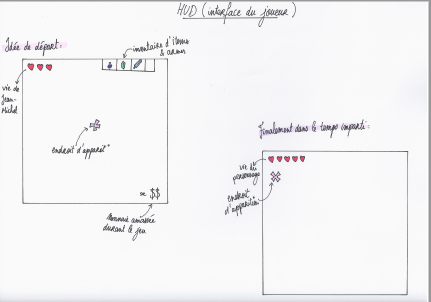 HUD (interface du joueur)
Idée de départ:
inventaire d'items
& armes
vie de
Jean-
Michel
endroit d'apparit°
$$
monnaie amassée
durant le jeu
Finalement dans le temps imparti:
vie du
personnage
endroit
d'apparition